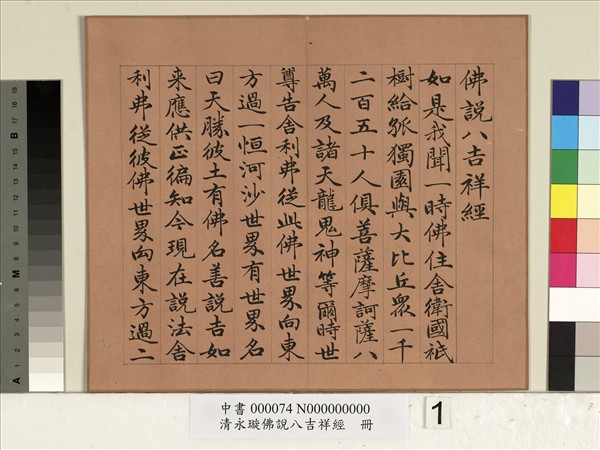 佛說八吉祥經
如是我聞一時佛住舍衛國祇
樹給孤獨園與大比丘眾一千
二百五十人俱菩薩摩訶薩八
萬人及諸天龍鬼神等爾時世
尊告舍利弗從此佛世界向東
方過一恒河沙世界有世界名
曰天勝彼土有佛名善說吉如
来應供正徧知今現在說法舍
利弗從彼佛世界向東方過二
中書 000074 N000000000
清永璇佛說八吉祥經 冊
1
19
18
17
16
15
B
14
13
12
11
10
9
8
M
7
6
5
4
3
2
1
A